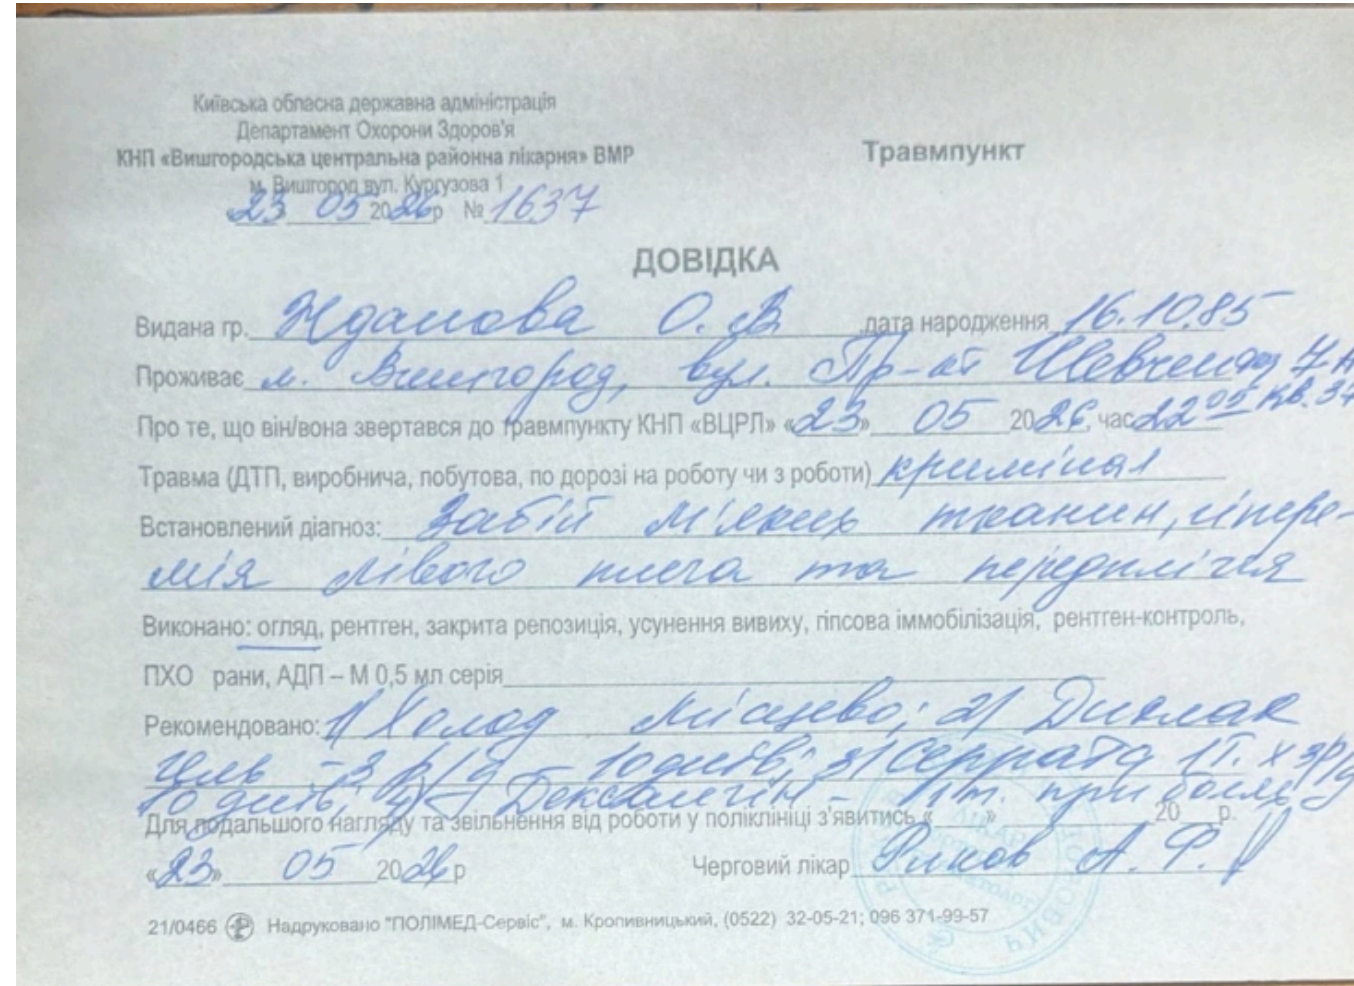 Київська обласна державна адміністрація
Департамент Охорони Здоров'я
КНП «Вишгородська центральна районна лікарня» ВМР
м. Вишгород вул. Кургузова 1
«23» 05 2026р № 1637
Травмпункт
ДОВІДКА
Видана гр. Жданова О. В дата народження 16.10.85
Проживає м. Вишгород, вул. Пр-кт Шевченка 7А
кв. 37
Про те, що він/вона звертався до травмпункту КНП «ВЦРЛ» «23» 05 2026, час 22 05
Травма (ДТП, виробнича, побутова, по дорозі на роботу чи з роботи) кримінал
Встановлений діагноз: Забій м'яких тканин, гіпере-
мія лівого плеча та передпліччя
Виконано: огляд, рентген, закрита репозиція, усунення вивиху, гіпсова іммобілізація, рентген-контроль,
ПХО рани, АДП – М 0,5 мл серія
Рекомендовано: 1) Холод місцево; 2) Диклак
гель - 3 р/д - 10 днів; 3) Серрата 1т. х 3р/д
10 днів; 4) Дексалгін - 1т. при болях
Для подальшого нагляду та звільнення від роботи у поліклініці з'явитись « » 20 р.
«23» 05 2026р Черговий лікар А. Ф.
21/0466 Надруковано "ПОЛІМЕД-Сервіс", м. Кропивницький, (0522) 32-05-21; 096 371-99-57